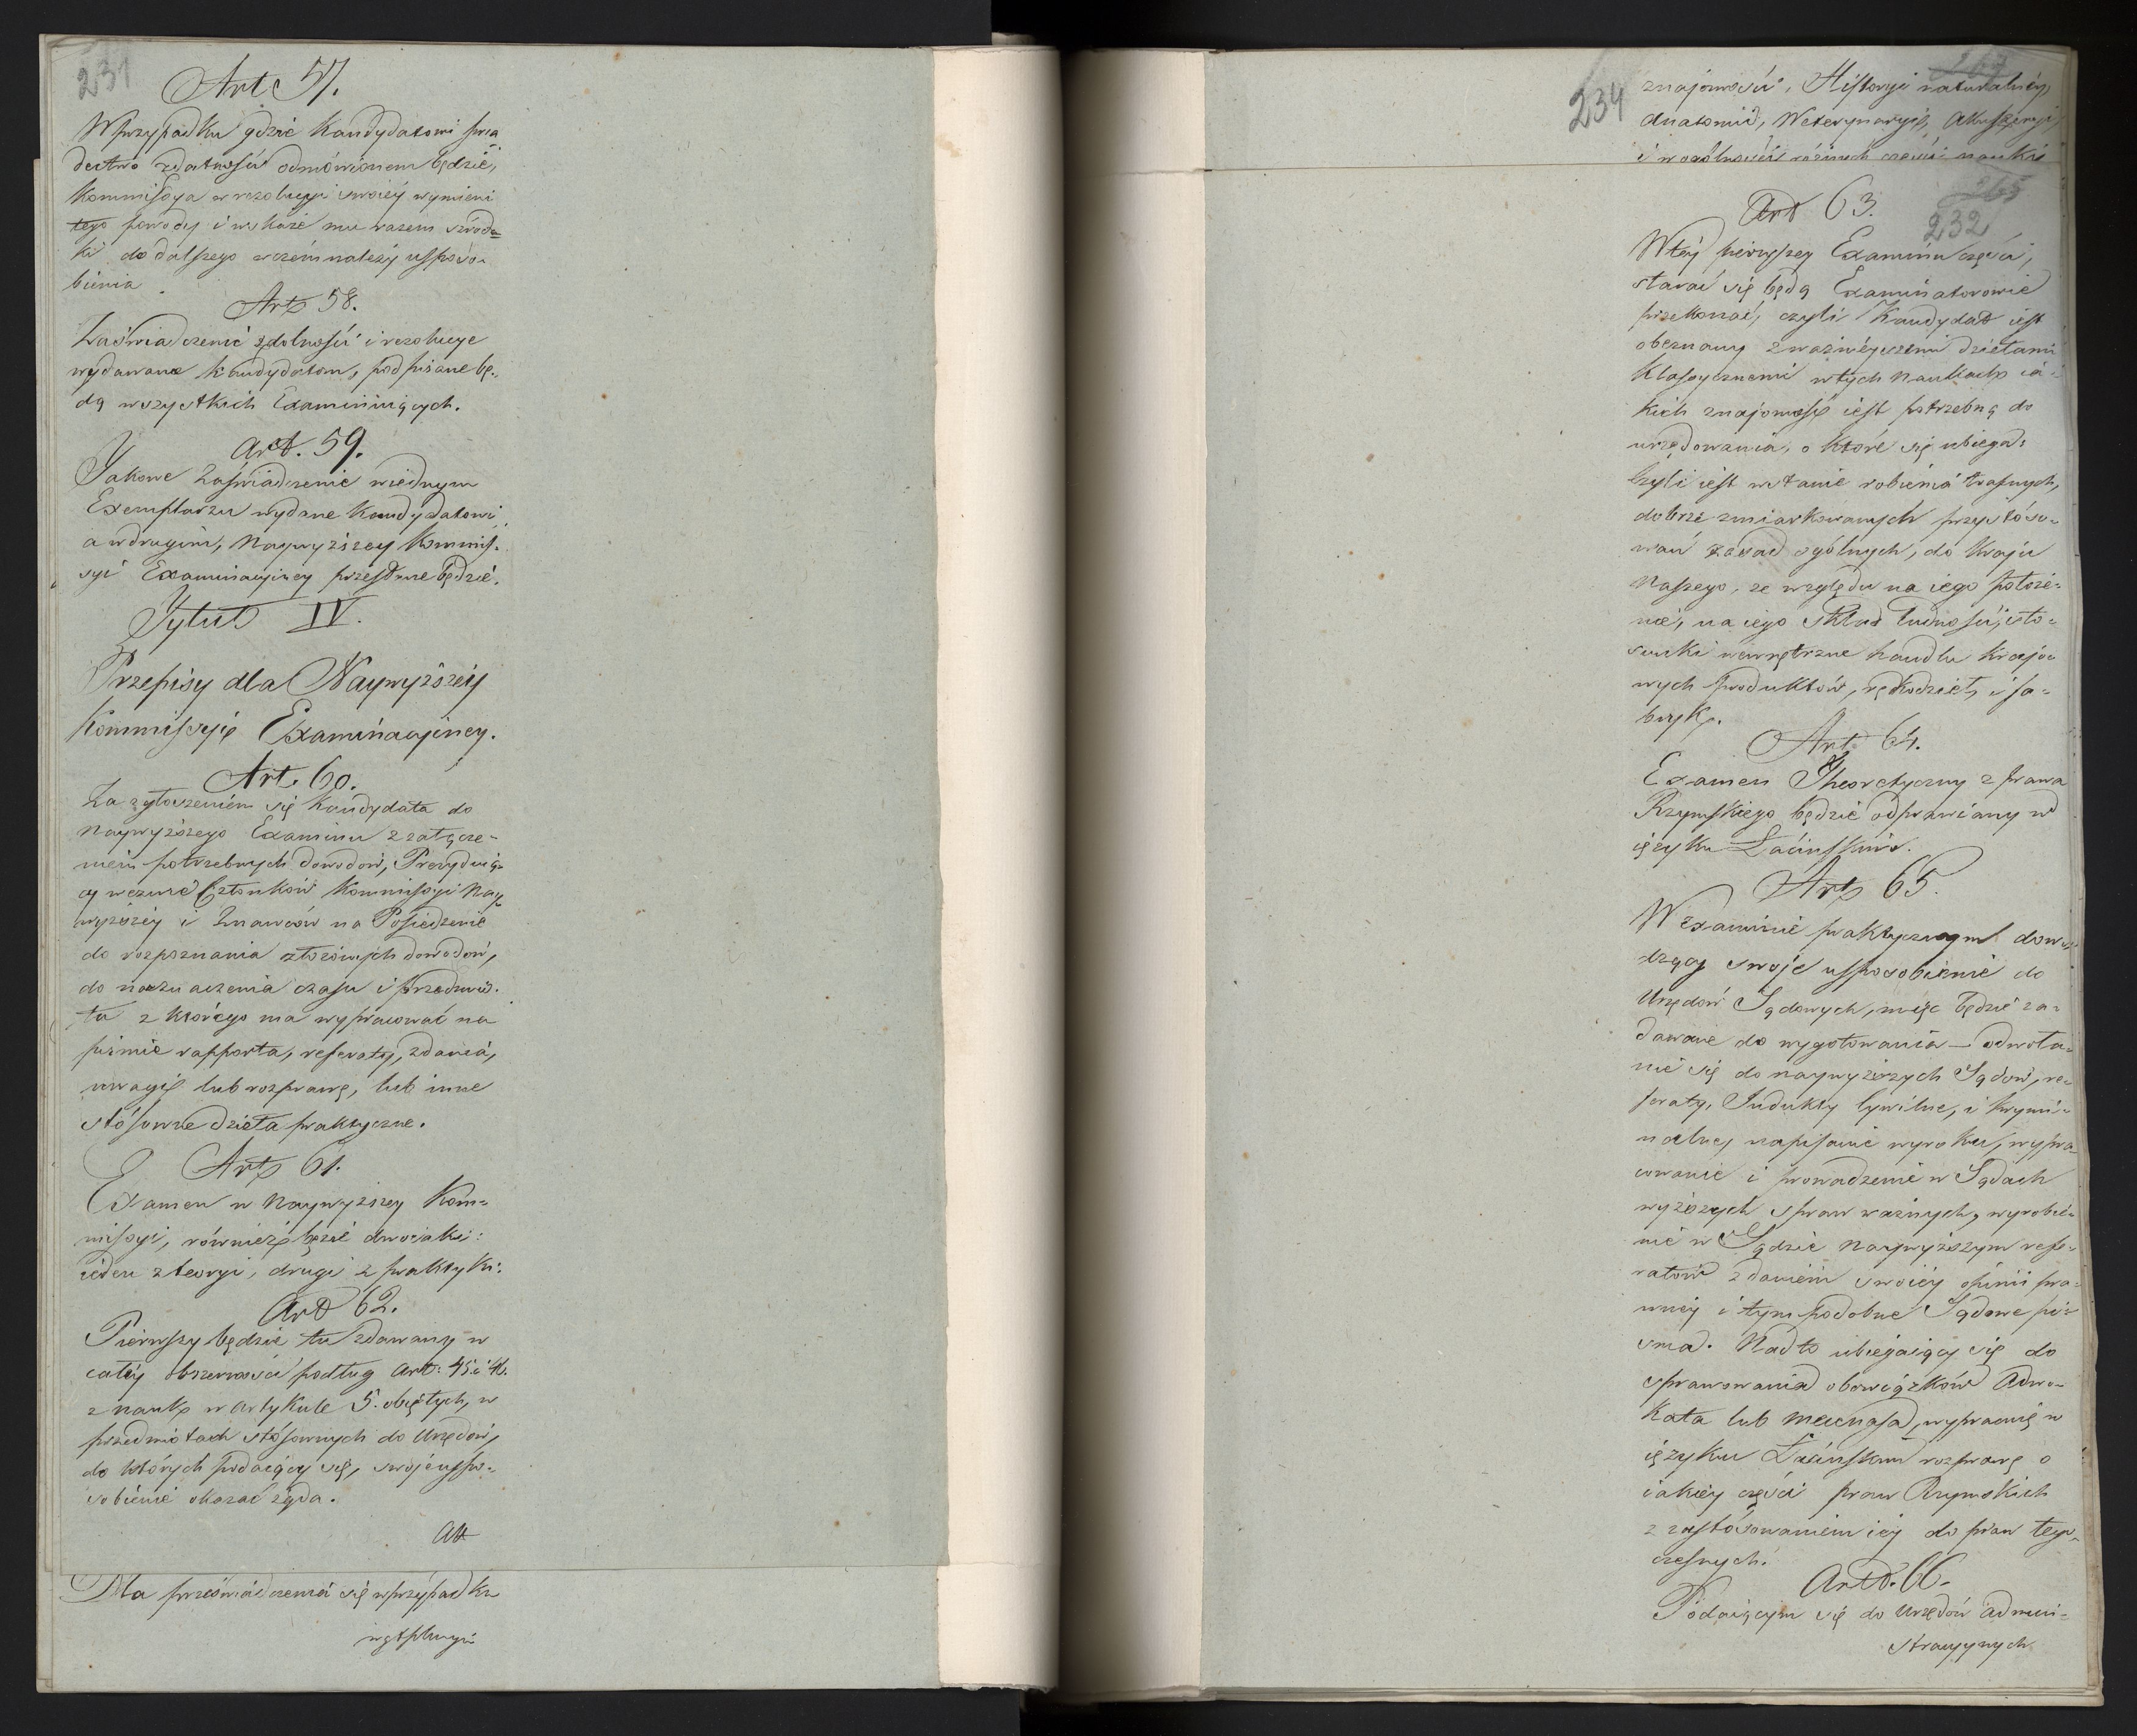 231
Art 57.
W przypadku gdzie Kandydatowi świa
dectwo zdatności odmówionem będzie,
Kommissya w rezolucyi swoiéy wymieni
tego powody i wskaże mu razem szrod=
ki do dalszego w czém należy usposo=
bienia
Art 58.
Zaświadczenie zdolności i rezolucye
wydawane Kandydatom, podpisane bę=
dą wszystkich Examinuiących.
Art. 59.
Jakowe Zaświadczenie w iednym
Exemplarzu wydane Kandydatowi
a w drugim, Naywyższey Kommis=
syi Examinacyiney przesłane będzie.
Tytuł IV.
Przepisy dla Naywyższéy
Kommissyi Examinacyiney.
Art. 60.
Za zgłoszeniem się Kandydata do
Naywyższego Examinu z załącze=
niem potrzebnych dowodów, Prezyduią=
cy wezwie Członków Kommissyi Nay=
wyższéy i Znawców na Posiedzenie
do rozpoznania złożonych dowodów,
do naznaczenia czasu i przedmio=
tu z którego ma wypracować na
piśmie rapporta, referaty, zdania,
uwagi lub rozprawę, lub inne
stósowne dzieła praktyczne.
Art 61.
Examen w Naywyższey Kom=
missyi, również będzie dwojaki:
ieden z teoryi, drugi z praktyki.
Art 62.
Pierwszy będzie tu zdawany w
całéy obszerności podług Art: 45 i 46.
z nauk w Artykule 5. obiętych, w
przedmiotach stósownych do Urzędów,
do których podaiący się, swoje uspo=
sobienie okazać żąda.
Art
Dla przeświadczenia się w przypadku
wątpliwym
234
znajomości, Historyi naturalnéy,
Anatomii, Weterynaryi, Akuszeryi,
i w ogólności różnych części nauki
232
Art 63.
W téy pierwszey Examinu części,
starać się będą Examinatorowie
przekonać, czyli Kandydat iest
obeznany z ważnieyszemi dziełami
klassycznemi w tych Naukach ia=
kich znajomość iest potrzebną do
urzędowania, o które się ubiega:
Czyli iest w stanie robienia trafnych,
dobrze zmiarkowanych przystóso=
wań zasad ogólnych, do Kraju
Naszego, ze względu na iego położe=
nie, na iego skład ludności, sto=
sunki wewnętrzne handlu krajo=
wych produktów, rękodzieł, i fa=
bryk.
Art 64.
Examen Theoretyczny z prawa
Rzymskiego będzie odprawiany w
ięzyku Łacińskim.
Art 65.
W Examinie praktycznym dowo=
dzący swoje usposobienie do
Urzędów Sądowych, mieć będzie za=
dawane do wygotowania — odwoła=
nie się do naywyższych Sądów, re=
feraty, Indukty Cywilne, i krymi=
nalney napisanie wyroku, wypra=
cowanie i prowadzenie w Sądach
wyższych spraw ważnych, wyrobie=
nie w Sądzie Naywyższym refe=
ratów z daniém swoiéy opinii pra=
wnéy i tym podobne Sądowe pi=
sma. Nadto ubiegaiący się do
sprawowania obowiązków Adwo=
kata lub Mecenasa, wypracuie w
ięzyku Łacińskim rozprawę o
iakiéy części praw Rzymskich
z zastósowaniem iéy do praw tegó=
czesnych.
Art. 66.
Podaiącym się do Urzędów Admini=
stracyynych